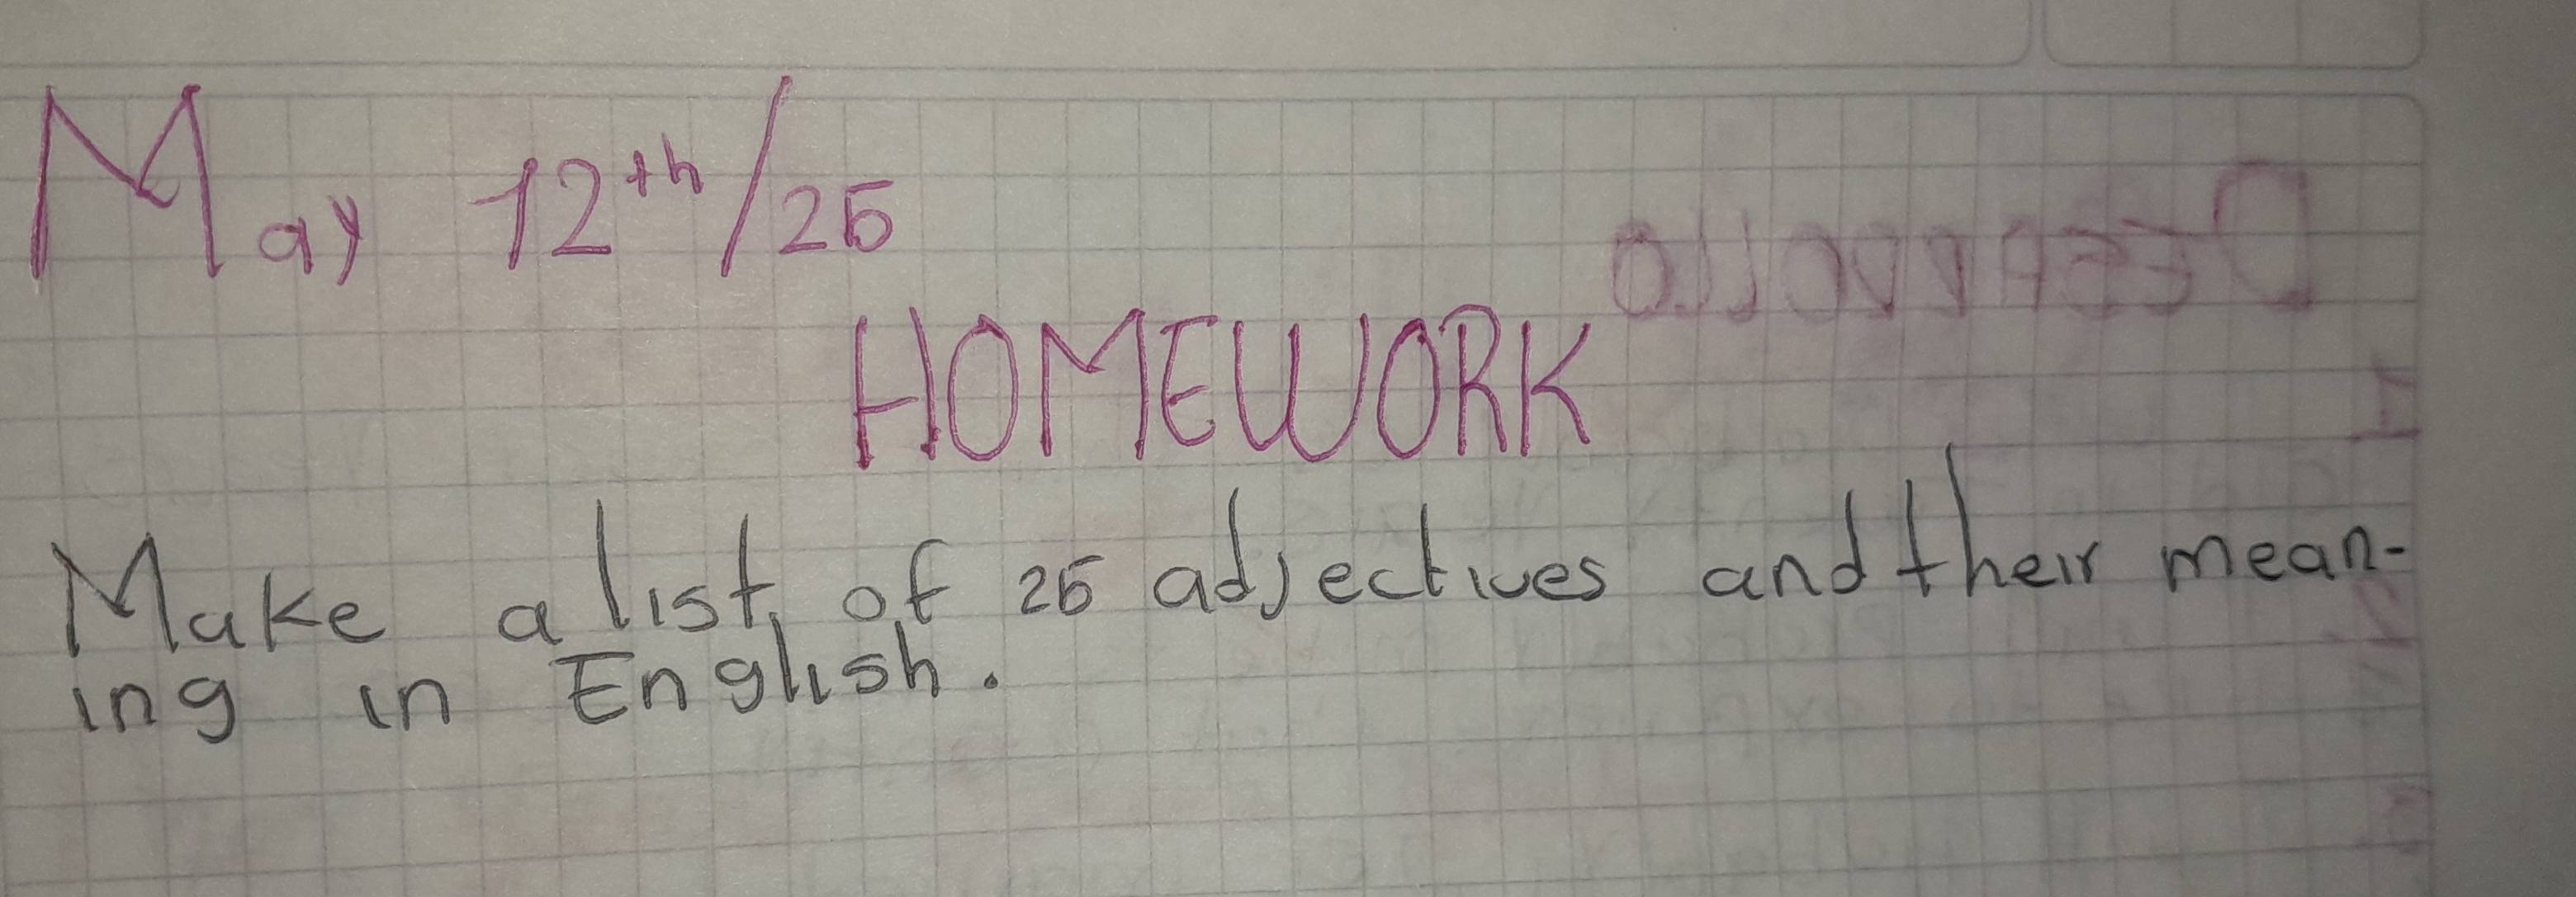 May 12th/25
HOMEWORK
Make a list of 25 adjectives and their mean-
ing in English.